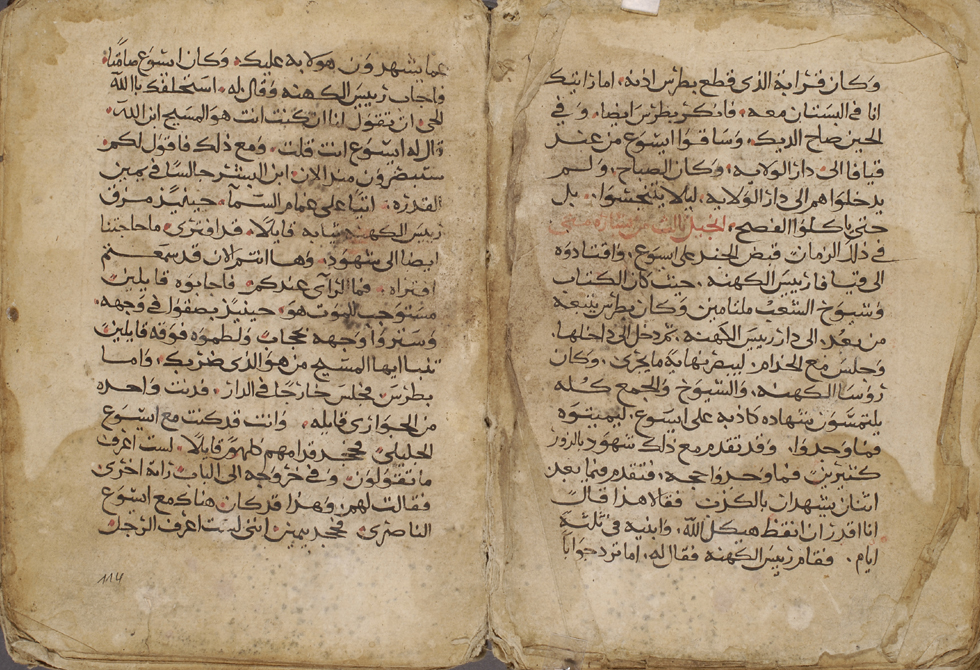 وكان قرابة الذي قطع بطرس اذنه، اما رايتك
انا في البستان معه، فانكر بطرس ايضا، وفي
الحين صاح الديك، وساقوا ايسوع من عند
قيافا الى دار الولايه، وكان الصباح، ولم
يدخلوا هم الى دار الولايه، ليلا يتنجسوا، بل
حتى ياكلوا الفصح، انجيل من بشاره متى
في ذلك الزمان قبض الجند على ايسوع، واقتادوه
الى قيافا رييس الكهنه، حيث كان الكتاب
وشيوخ الشعب ملتامين وكان بطرس يتبعه
من بعد، الى دار رييس الكهنه، ثم دخل الى داخلها،
وجلس مع الخدام، ليبصر نهاية ما يجري، وكان
روسا الكهنه، والشيوخ والجمع كله
يلتمسون شهاده كاذبه على ايسوع، ليميتوه
فما وجدوا، وقد تقدم مع ذلك شهود بالزور
كثيرين فما وجدوا حجه، فتقدم فيما بعد
اثنان يشهدان بالكذب فقالا هذا قال
انا اقدر ان انقظ هيكل الله، وابنيه في ثلثة
ايام. فقام رييس الكهنه فقال له، اما ترد جوابا
عما يشهدون هولايه عليك، وكان ايسوع صامتا،
واجاب رييس الكهنه وقال له، استحلفك بالله
الحي ان تقول لنا ان كنت انت هو المسيح ابن الله،
قال له ايسوع انت قلت، ومع ذلك فاقول لكم
ستبصرون منذ الان ابن البشر جالسا في يمين
القدره، اتيا على غمام السمآ، حينيذ مزق
رييس الكهنه ثيابه قايلا، قد افترى، ما حاجتنا
ايضا الى شهود، وها انتم الان قد سمعتم
افتراه، فما الراي عندكم، فاجابوه قايلين
مستوجب الموت هو، حينيذ بصقوا في وجهه،
وستروا وجهه ولطموه فوقه قايلين
تنبا ايها المسيح من هو الذي ضربك، واما
بطرس فجلس خارجا في الدار، فدنت واحده
من الجواري قايله، وانت قد كنت مع ايسوع
الجليلي، فجحد قدامهم كلهم قايلا، لست اعرف
ما تقولون وفي خروجه الى الباب راته اخرى
فقالت لهم، وهذا قد كان هناك مع ايسوع
الناصري، فجحد بيمين انني لست اعرف الرجل
114